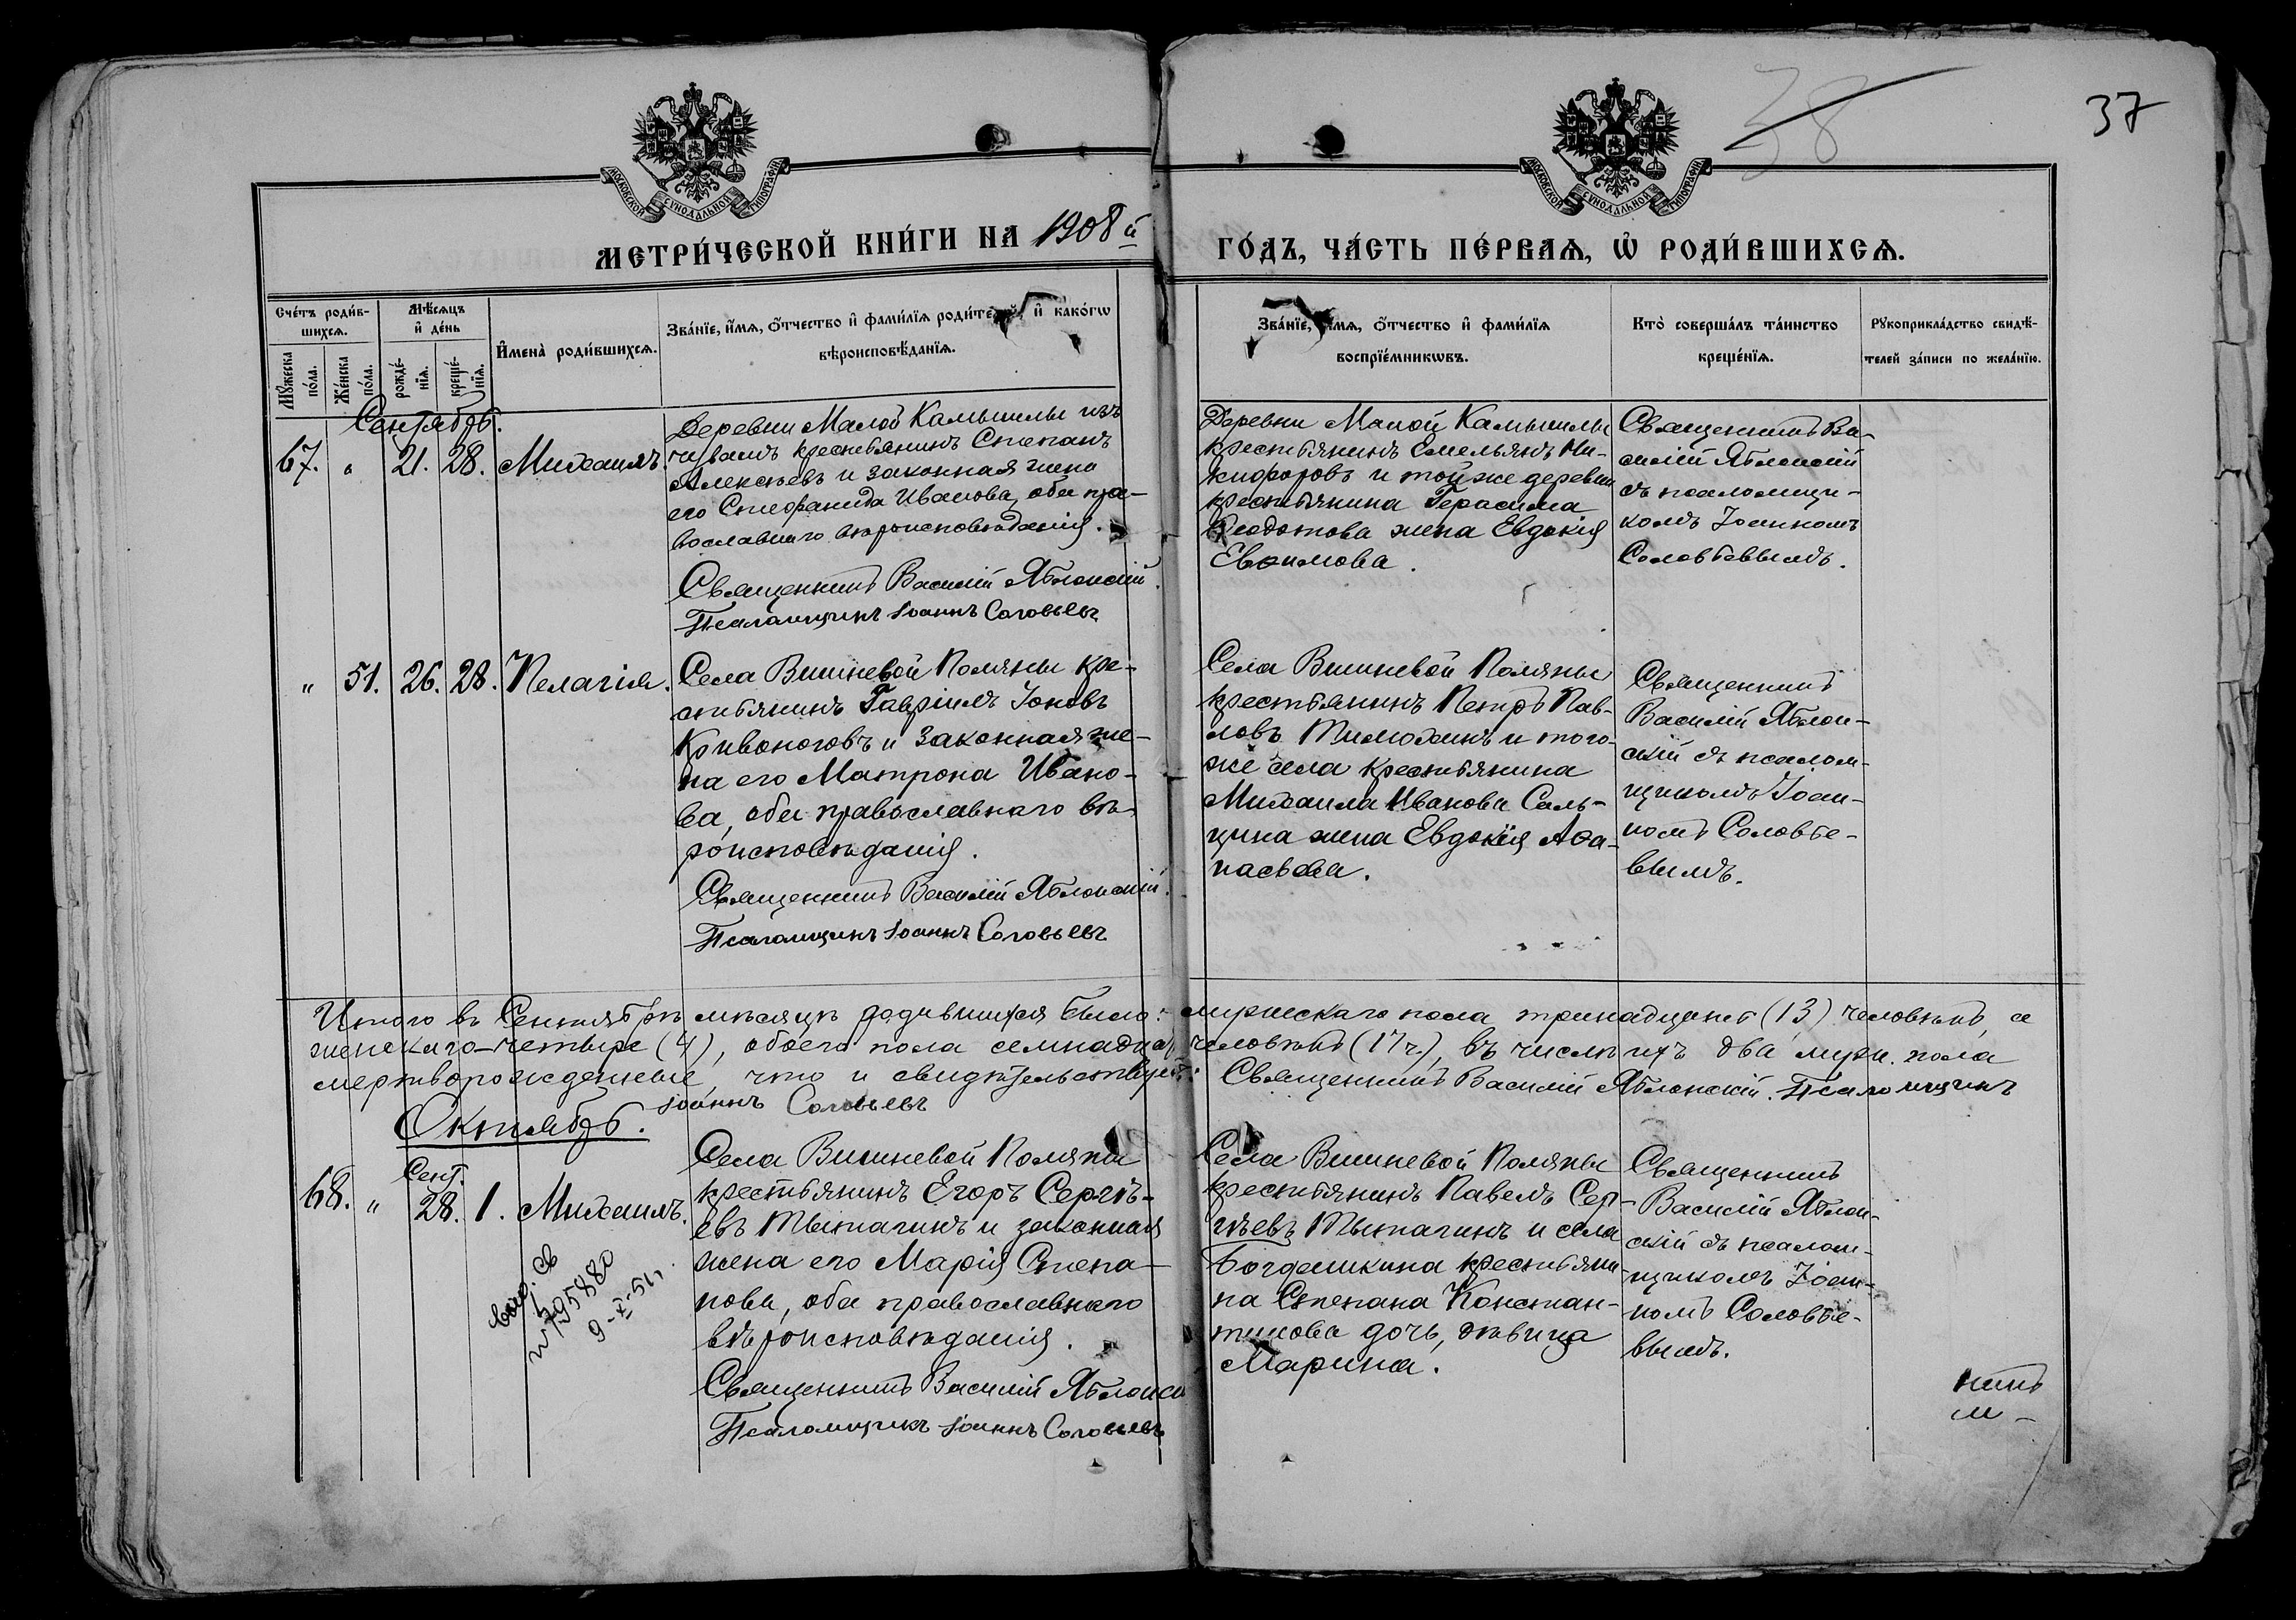 38
37
МОСКОВСКОЙ СѴНОДАЛЬНОЙ ТИПОГРАФІИ
МОСКОВСКОЙ СѴНОДАЛЬНОЙ ТИПОГРАФІИ
МЕТРИ́ЧЕСКОЙ КНИ́ГИ НА 1908й
ГО́ДЪ, ЧА́СТЬ ПЕ́РВАѦ, Ѡ҆ РОДИ́ВШИХСѦ.
Сче́тъ роди́в-
шихсѧ.
Мѣ́сѧцъ
и҆ де́нь
Мꙋ́жеска
по́ла.
Же́нска
по́ла.
рожде́-
нїѧ.
креще́-
нїѧ.
И҆мена̀ роди́вшихсѧ.
Зва́нїе, и҆́мѧ, ѻ҆́тчество и҆ фами́лїѧ роди́телей, и҆ како́гѡ
вѣроисповѣ́данїѧ.
Зва́нїе, и҆́мѧ, ѻ҆́тчество и҆ фами́лїѧ
воспрїе́мникѡвъ.
Кто̀ соверша́лъ та́инство
креще́нїѧ.
Рꙋкоприкла́дство свидѣ́-
телей за́писи по жела́нїю.
Сентябрь.
67. " 21. 28. Михаилъ.
Деревни Малой Камышлы изъ
чувашъ крестьянинъ Степанъ
Алексѣевъ и законная жена
его Стефанида Иванова, оба пра-
вославнаго вѣроисповѣданія.
Священникъ Василій Яблонскій.
Псаломщикъ Іоаннъ Соловьевъ
Деревни Малой Камышлы
крестьянинъ Емельянъ Ни-
кифоровъ и той же деревни
крестьянина Герасима
Ѳеодотова жена Евдокія
Евѳимова.
Священникъ Ва-
силій Яблонскій
съ псаломщи-
комъ Іоанномъ
Соловьевымъ.
" 51. 26. 28. Пелагія.
Села Вишневой Поляны кре-
стьянинъ Гавріилъ Іоновъ
Кривоноговъ и законная же-
на его Матрона Ивано-
ва, оба православнаго вѣ-
роисповѣданія.
Священникъ Василій Яблонскій.
Псаломщикъ Іоаннъ Соловьевъ
Села Вишневой Поляны
крестьянинъ Петръ Пав-
ловъ Тимохинъ и того-
же села крестьянина
Михаила Иванова Саль-
цина жена Евдокія Аѳа-
насьева.
Священникъ
Василій Яблон-
скій съ псалом-
щикомъ Іоан-
номъ Соловье-
вымъ.
Итого въ Сентябрѣ мѣсяцѣ родившихся было: мужескаго пола тринадцать (13) человѣкъ, а
женскаго-четыре (4), обоего пола семнадцать человѣкъ (17 ч.), въ числѣ ихъ два муж. пола
мертворожденные, что и свидѣтельствуютъ: Священникъ Василій Яблонскій. Псаломщикъ
Іоаннъ Соловьевъ
Октябрь.
68. " Сент. 28. 1. Михаилъ.
Села Вишневой Поляны
крестьянинъ Егоръ Сергѣ-
евъ Тытагинъ и законная
жена его Марія Степа-
нова, оба православнаго
вѣроисповѣданія.
Священникъ Василій Яблонск
Псаломщикъ Іоаннъ Соловьевъ
Села Вишневой Поляны
крестьянинъ Павелъ Сер-
гѣевъ Тытагинъ и села
Богдашкина крестьяни-
на Степана Констан-
тинова дочь, дѣвица
Марина.
Священникъ
Василій Яблон-
скій съ псалом-
щикомъ Іоан-
номъ Соловье-
вымъ.
св
795880
9-X-51г.
никъ
м-